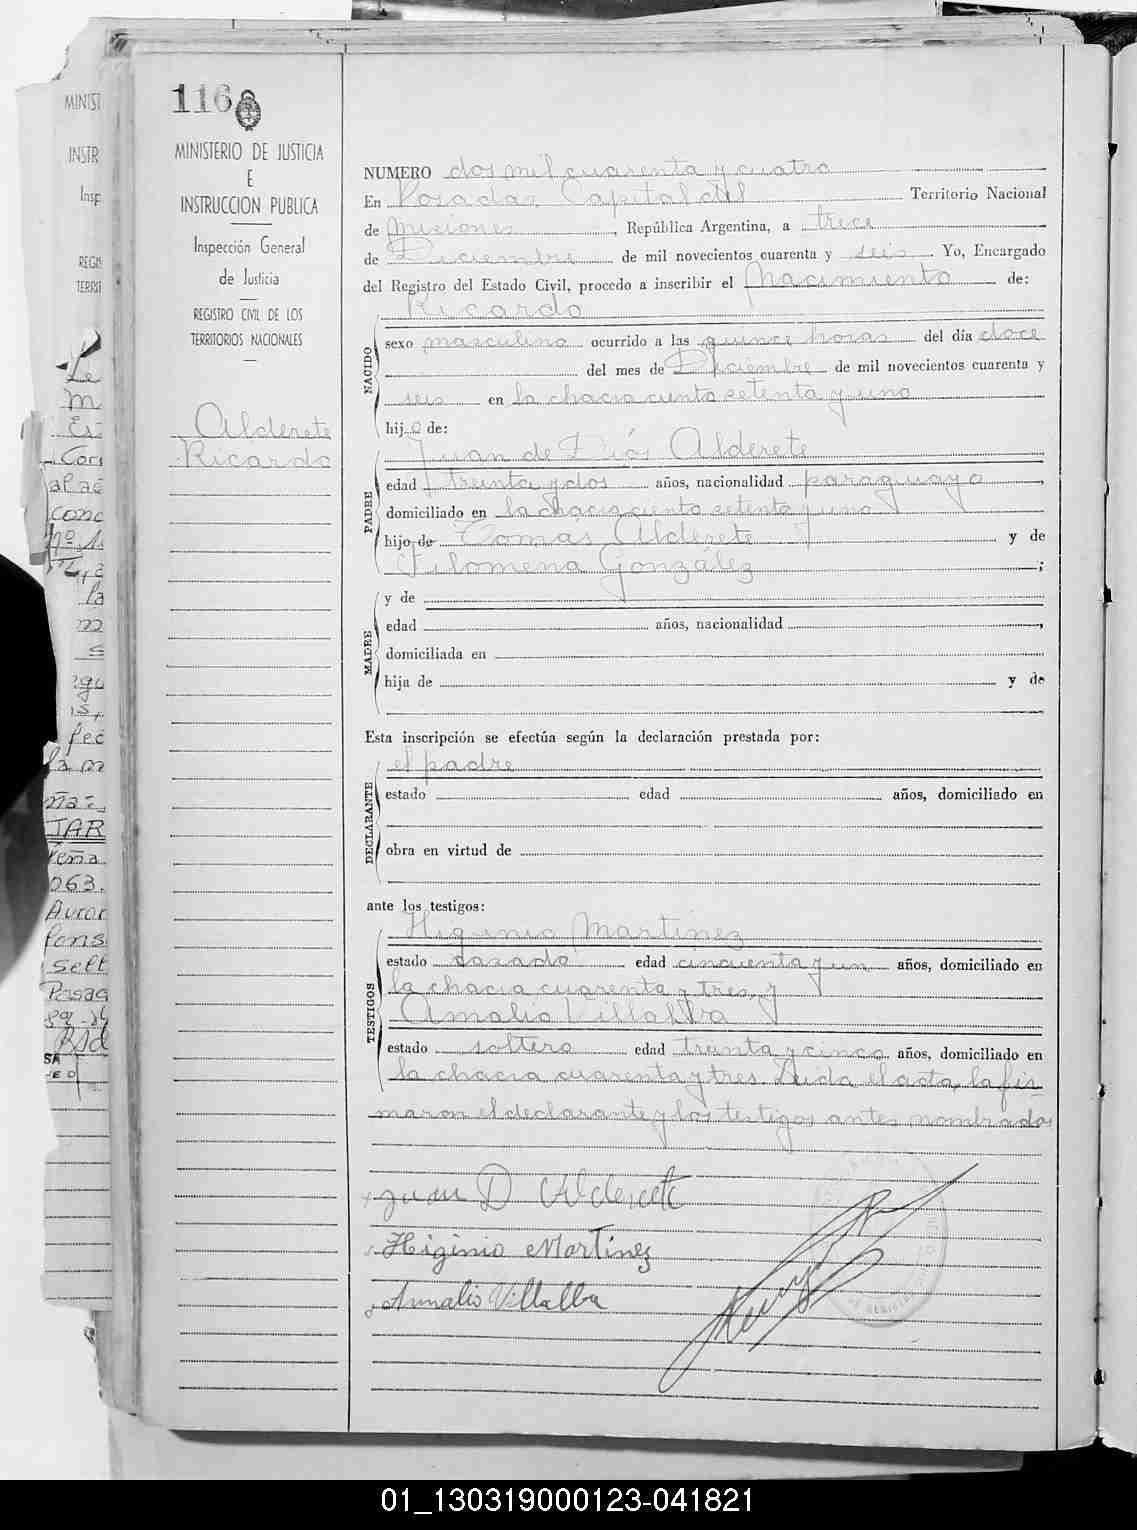 116
MINISTERIO DE JUSTICIA
E
INSTRUCCION PUBLICA
Inspección General
de Justicia
REGISTRO CIVIL DE LOS
TERRITORIOS NACIONALES
Alderete
Ricardo
NUMERO dos mil cuarenta y cuatro
En Posadas Capital del Territorio Nacional
de Misiones, República Argentina, a trece
de Diciembre de mil novecientos cuarenta y seis. Yo, Encargado
del Registro del Estado Civil, procedo a inscribir el Nacimiento de:
Ricardo
NACIDO
sexo masculino ocurrido a las quince horas del día doce
del mes de Diciembre de mil novecientos cuarenta y
seis en la chacra ciento setenta y uno
hijo de:
Juan de Diós Alderete
PADRE
edad treinta y dos años, nacionalidad paraguayo,
domiciliado en la chacra ciento setenta y uno
hijo de Tomás Alderete y de
Filomena González;
MADRE
y de
edad años, nacionalidad,
domiciliada en
hija de y de
Esta inscripción se efectúa según la declaración prestada por:
el padre
DECLARANTE
estado edad años, domiciliado en
obra en virtud de
ante los testigos:
Higinio Martinez
TESTIGOS
estado casado edad cincuenta y un años, domiciliado en
la chacra cuarenta y tres, y
Amalio Villalba
estado soltero edad treinta y cinco años, domiciliado en
la chacra cuarenta y tres. Leida el acta, la fir
maron el declarante y los testigos antes nombrados
Juan D Alderete
Higinio Martinez
Amalio Villalba
MINIST
INSTR
Insp
REGIS
TERRI
JAR
063.
Auror
Pasag
01_130319000123-041821